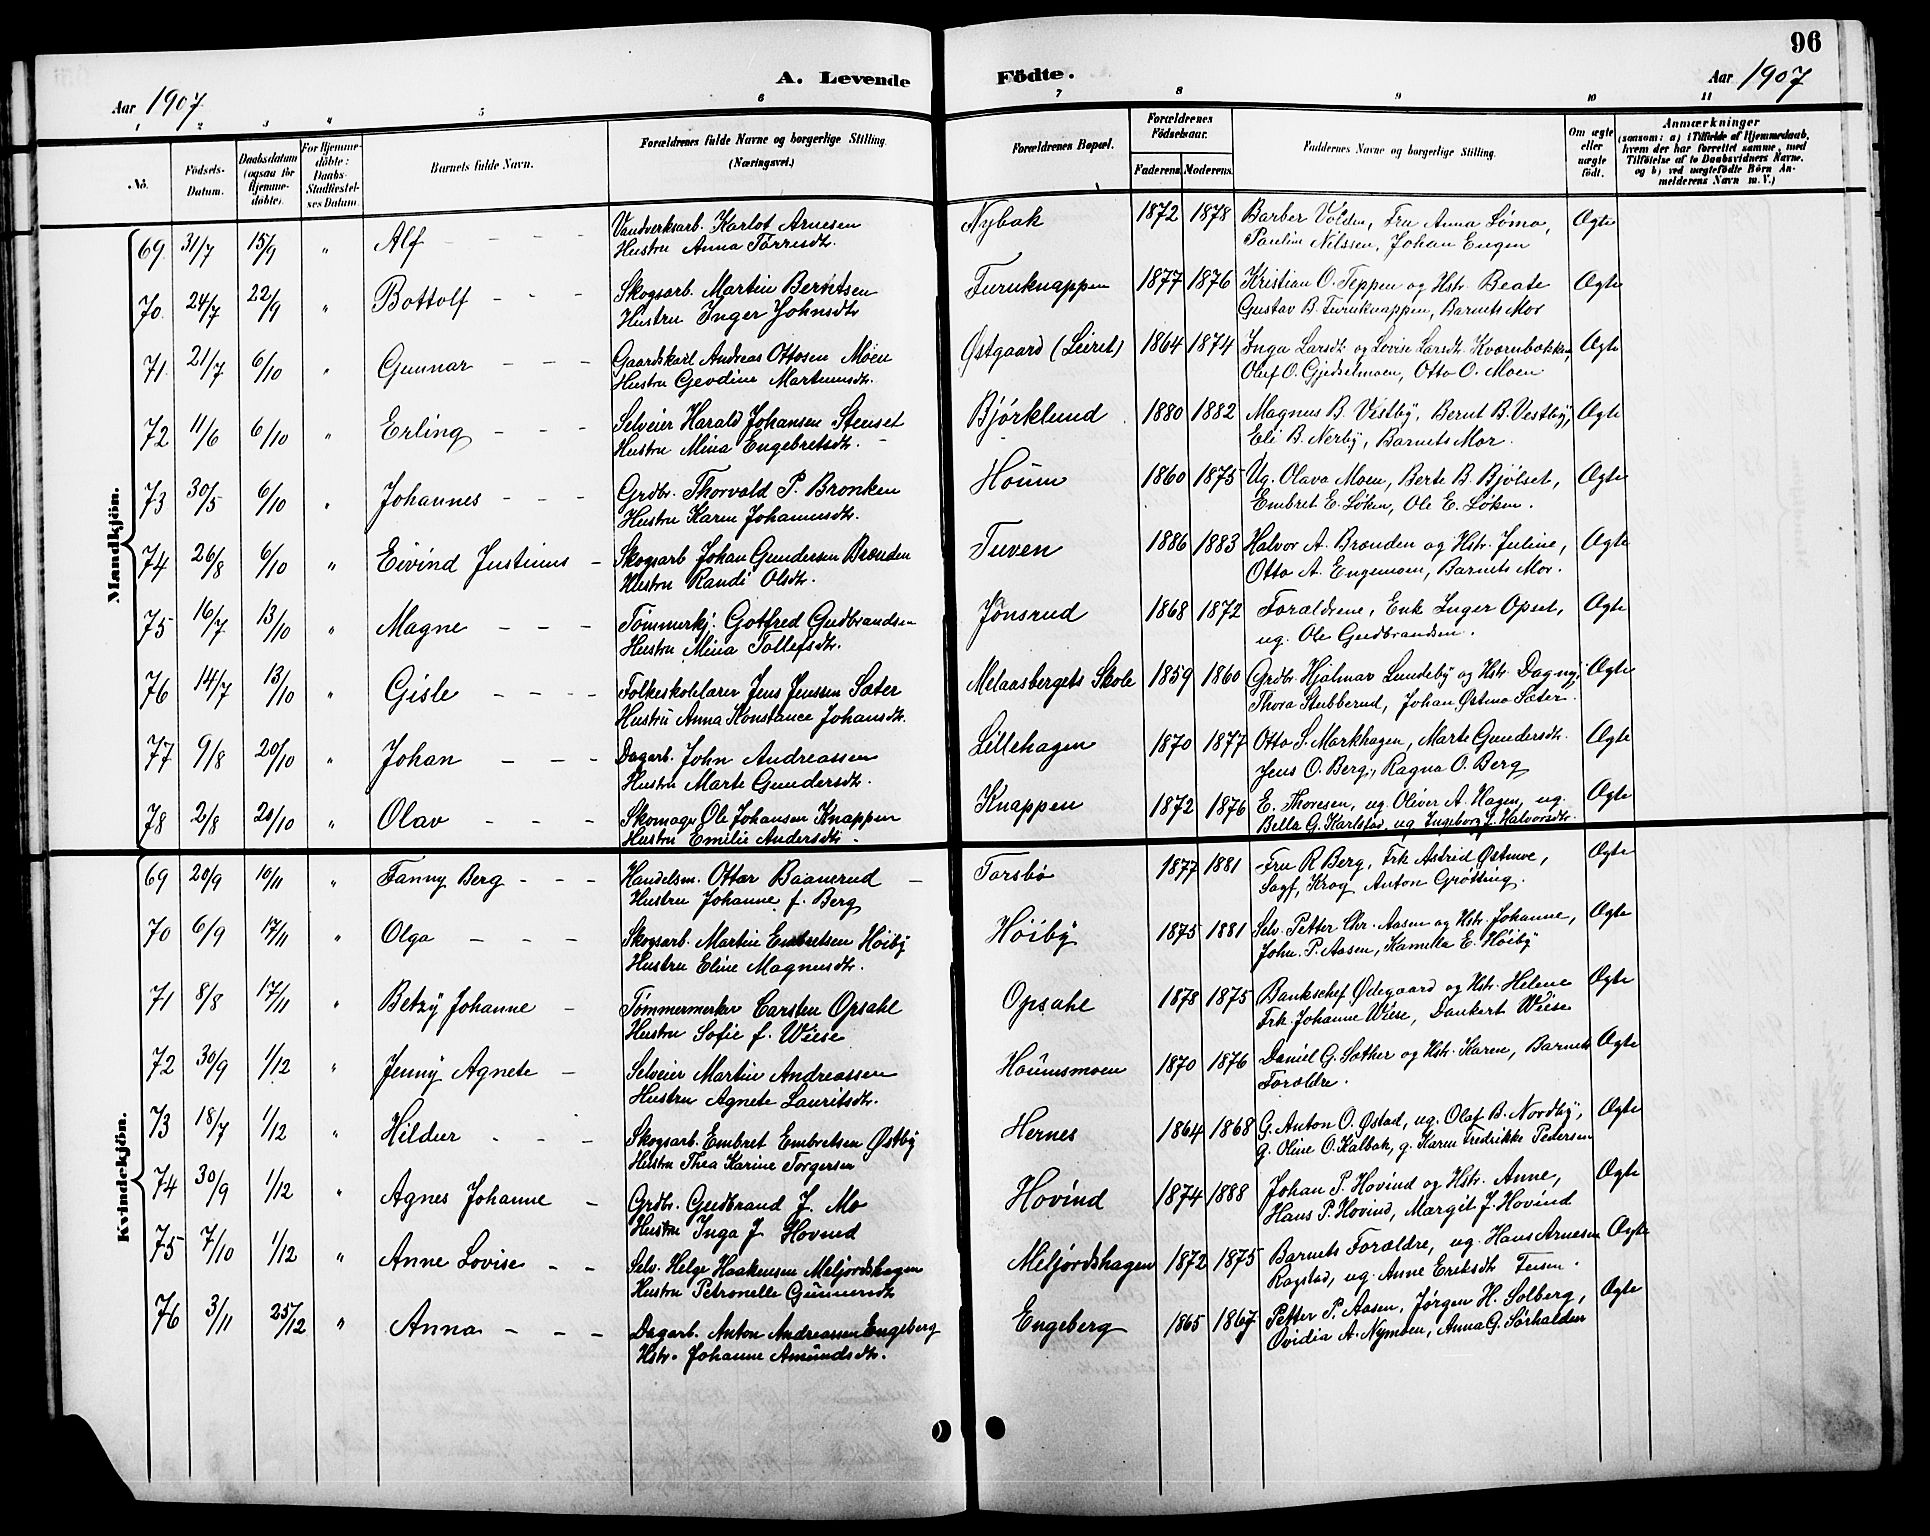 96
A. Levende Födte.
Aar 1907
Aar 1907
1 2 3 4 5 6 7 8 9 10 11
No.
Födsels-Datum.
Daabsdatum (ogsaa for Hjemmedöbte).
For Hjemmedöbte: Daabs-Stadfæstelses Datum
Barnets fulde Navn.
Forældrenes fulde Navne og borgerlige Stilling (Næringsvei.)
Forældrenes Bopæl.
Forældrenes Födselsaar.
Faderens. Moderens.
Faddernes Navne og borgerlige Stilling.
Om ægte eller uægte födt.
Anmærkninger
(saasom: a) i Tilfælde af Hjemmedaab, hvem der har forrettet samme, med Tilföielse af to Daabsvidners Navne, og b) ved uægtefödte Börn Anmelderens Navn m. V.)
Mandkjön.
69 31/7 15/9 " Alf Vandverksarb. Karlot Arnesen Nybak 1872 1878 Barber Volden, Fru Anna Lømo, Ægte
Hustru Anna Torrisdt. Pauline Nilssen, Johan Engen
70 24/7 22/9 " Bottolf Skogsarb. Martin Berntsen Furuknappen 1877 1876 Kristian O. Teppen og Hstr. Beate Ægte
Hustru Inger Johnsdt. Gustav B. Furuknappen, Barnets Mor
71 21/7 6/10 " Gunnar Gaardskarl Andreas Ottosen Moen Østgaard (Leiret) 1864 1874 Inga Larsdt. og Lovise Larsdt. Kværnbækken Ægte
Hustru Gevdine Martinusdt. Oluf O. Gjedselmoen, Otto O. Moen
72 11/6 6/10 " Erling Selveier Harald Johansen Stenset Bjørklund 1880 1882 Magnus B. Vestby, Bernt B. Vestby, Ægte
Hustru Mina Engebretsdt. Eli B. Nerby, Barnets Mor.
73 30/5 6/10 " Johannes Grdbr. Thorvald P. Bronken Houm 1860 1875 Ug. Olava Moen, Berte B. Bjølset, Ægte
Hustru Karen Johannesdt. Embret E. Løken, Ole E. Løken.
74 26/8 6/10 " Eivind Justinus Skogsarb Johan Gundersen Brænden Tuven 1886 1883 Halvor A. Brænden og Hstr. Juline, Ægte
Hustru Randi Olsdt. Otto A. Engemoen, Barnets Mor.
75 16/7 13/10 " Magne Tømmerkj. Gotfred Gudbrandsen Jønsrud 1868 1872 Forældrene, Enk. Inger Opset, Ægte
Hustru Mina Tollefsdt. ug. Ole Gudbrandsen.
76 14/7 13/10 " Gisle Folkeskolelærer Jens Jenssen Sæter Melaasbergets Skole 1859 1860 Grdbr. Hjalmar Lundeby og Hstr. Dagny Ægte
Hustru Anna Konstance Johansdt. Thora Stubberud, Johan Østmo Sæter.
77 9/8 20/10 " Johan Dagarb. John Andreassen Lillehagen 1870 1877 Otto S. Markhagen, Marte Gundersdt. Ægte
Hustru Marte Gundersdt. Jens O. Berg, Ragna O. Berg
78 2/8 20/10 " Olav Skomager Ole Johansen Knappen Knappen 1872 1876 E. Thoresen, ug. Oliver A. Hagen, ug. Ægte
Hustru Emilie Andersdt. Bella G. Karlstad, ug Ingeborg J. Halvorsdt.
Kvindekjön.
69 20/9 10/11 " Fanny Berg Handelsm. Ottar Baanerud Torsbø 1877 1881 Fru R Berg, Frk Astrid Østmoe, Ægte
Hustru Johanne f. Berg Sagf. Krog Anton Grøtting.
70 6/9 17/11 " Olga Skogsarb. Martin Embretsen Høiby Høiby 1875 1881 Selv. Petter Chr. Aasen og Hstr. Johanne, Ægte
Hustru Eline Magnusdt. John. P. Aasen, Kamilla E. Høiby
71 8/8 17/11 " Betzy Johanne Tømmermerker Carsten Opsahl Opsahl 1878 1875 Bankschef Ødegaard og Hstr. Helene Ægte
Hustru Sofie f. Wiese Frk. Johanne Wiese, Dankert Wiese
72 30/9 1/12 " Jenny Agnete Selveier Martin Andreassen Houmsmoen 1870 1876 Daniel G. Sæther og Hstr. Karen, Barnets Ægte
Hustru Agnete Lauritsdt. Forældre.
73 18/7 1/12 " Hildur Skogsarb. Embret Embretsen Østby Hernes 1864 1868 G. Anton O. Østad, ug. Olaf B. Nordby, Ægte
Hustru Thea Karine Torgersen g. Oline O. Kalbak, g. Karen Fredrikke Pedersen
74 30/9 1/12 " Agnes Johanne Grdbr. Gudbrand J. Mo Hovind 1874 1888 Johan P. Hovind og Hstr. Anne, Ægte
Hustru Inga J Hovind Hans P. Hovind, Margit J. Hovind
75 7/10 1/12 " Anne Lovise Selv. Helge Haakensen Meljordshagen Meljordshagen 1872 1875 Barnets Forældre, ug. Hans Arnesen Ægte
Hustru Petronelle Gunnersdt. Rogstad, ug. Anne Eriksdt.
76 3/11 25/12 " Anna Dagarb. Anton Andreassen Engeberg Engeberg 1865 1867 Petter P. Aasen, Jørgen H. Solberg, Ægte
Hstr. Johanne Amundsdt. Ovidia A. Nymoen, Anna G. Sørhalden